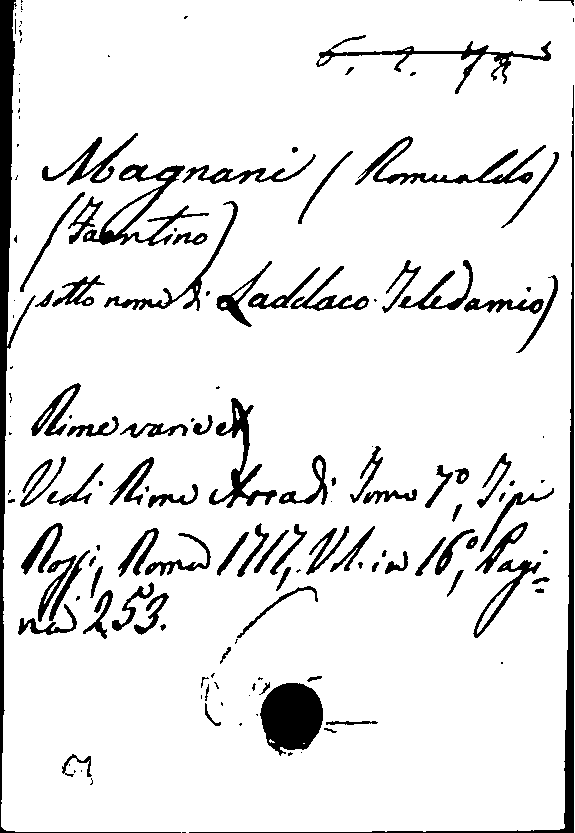 6. 2. 78
Magnani (Romualdo)
(Faentino)
(sotto nome di Laddaco Teledamio)
Rime varie
Vedi Rime Arcadi Tomo 7º, Tipi
Rossi, Roma 1717, Vl. in 16º, Pagi=
na 253.